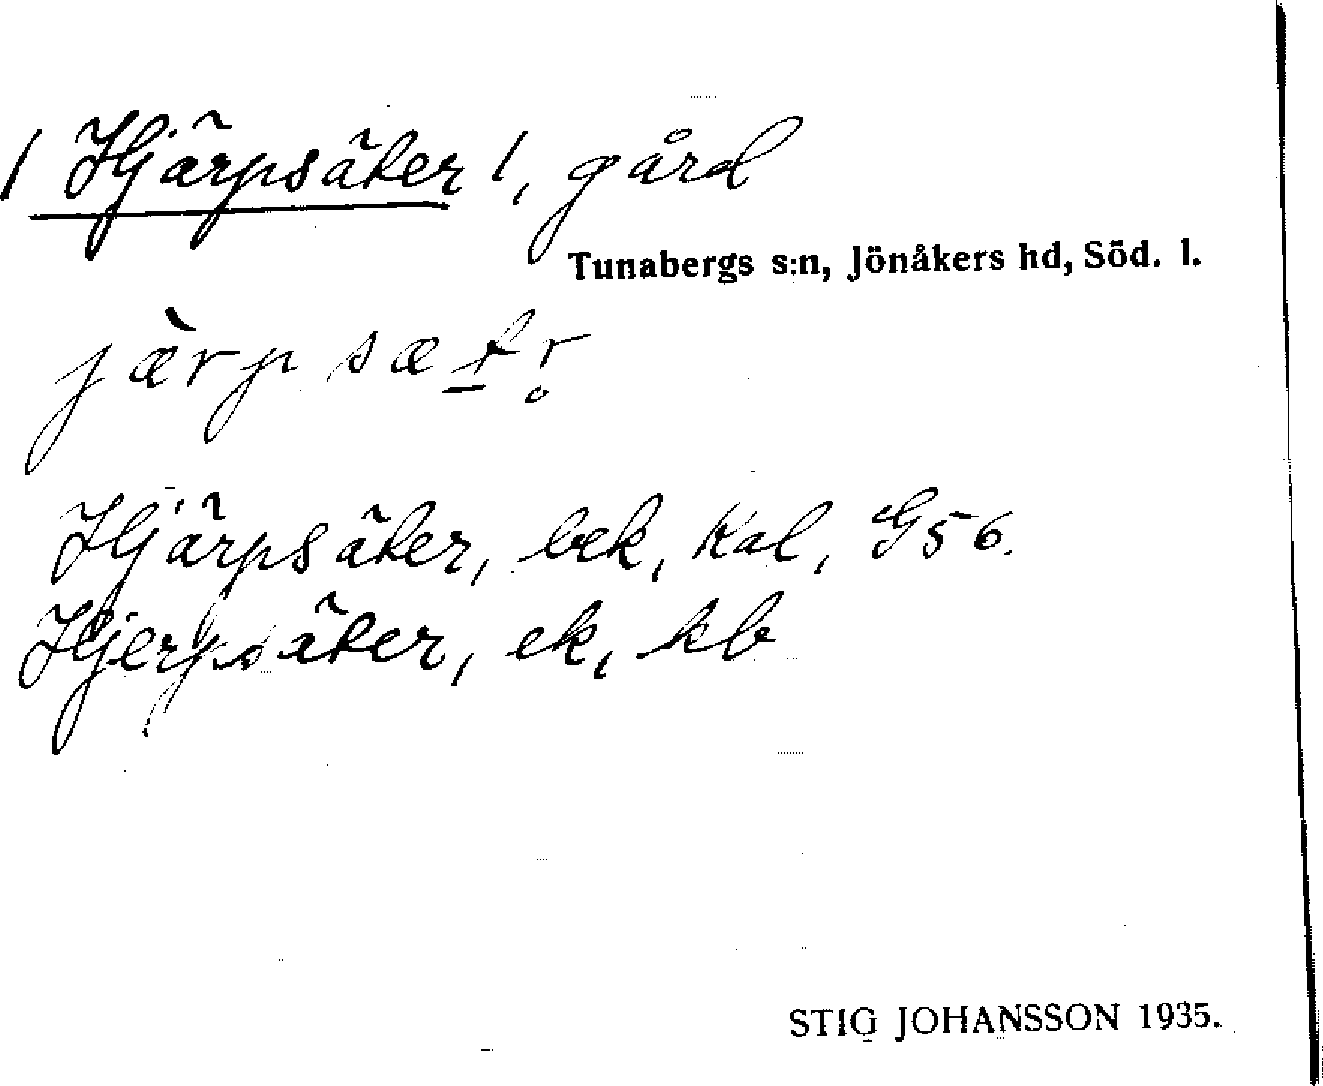 / Hjärpsäter /, gård
Tunabergs s:n, Jönåkers hd, Söd. l.
jæ̀rp sæt̠r̥
Hjärpsäter, bek, Kal, G56.
Hjerpsäter, ek, kb
STIG JOHANSSON 1935.